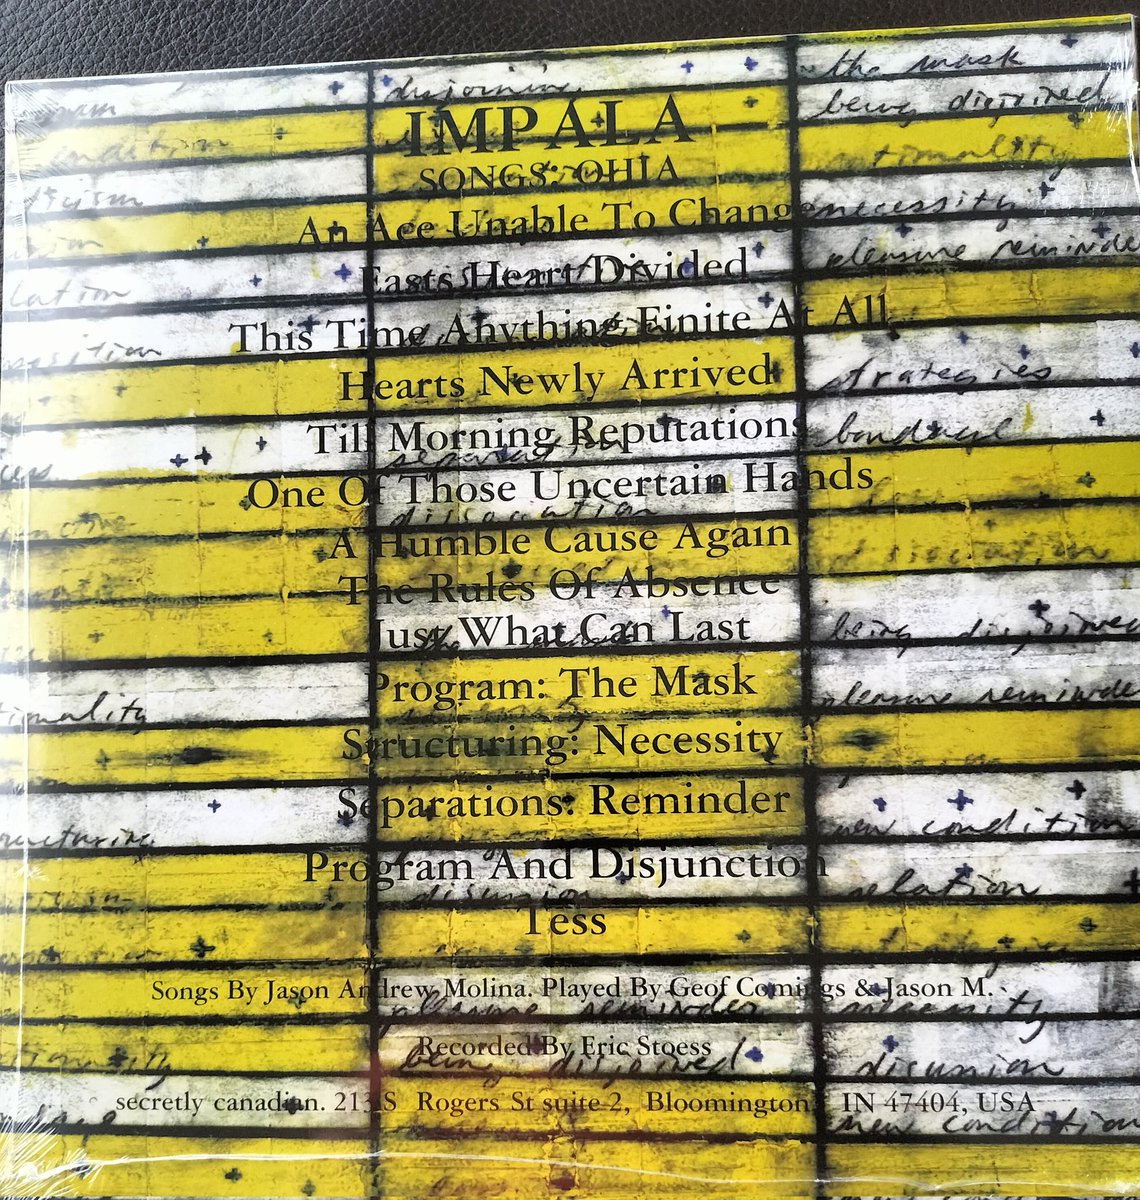 the mask
disjoining
being disjoined
IMPALA
SONGS: OHIA
An Ace Unable To Change
necessity
Easts Heart Divided
pleasure reminde
lation
This Time Anything Finite At All
Hearts Newly Arrived
strategies
Till Morning Reputations
One Of Those Uncertain Hands
dissociation
A Humble Cause Again
The Rules Of Absence
Just What Can Last
being disjoined
Program: The Mask
pleasure reminde
tionality
Structuring: Necessity
Separations: Reminder
new condition
ructuring
Program And Disjunction
disunion
relation
Tess
Songs By Jason Andrew Molina. Played By Geof Comings & Jason M.
pleasure reminder
necessity
Recorded By Eric Stoess
being disjoined
disunion
secretly canadian. 213 S Rogers St suite 2, Bloomington IN 47404, USA
new condition